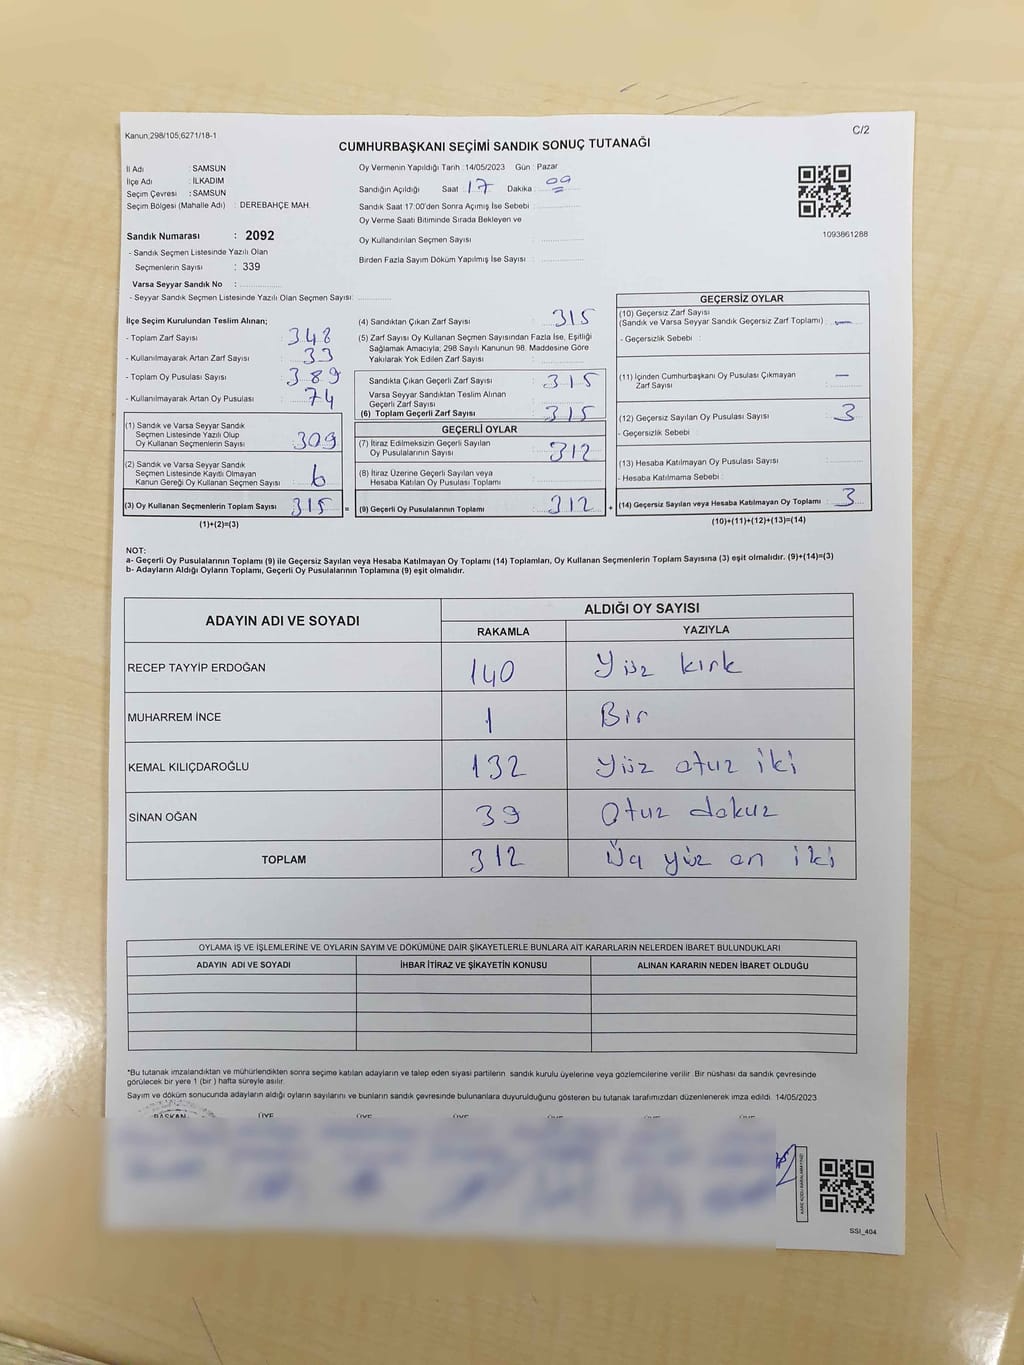 Kanun;298/105;6271/18-1
C/2
CUMHURBAŞKANI SEÇİMİ SANDIK SONUÇ TUTANAĞI
İl Adı : SAMSUN
İlçe Adı : İLKADIM
Seçim Çevresi : SAMSUN
Seçim Bölgesi (Mahalle Adı) : DEREBAHÇE MAH.
Oy Vermenin Yapıldığı Tarih :14/05/2023 Gün : Pazar
Sandığın Açıldığı Saat : 17 Dakika : 00
Sandık Saat 17:00'den Sonra Açımış İse Sebebi :
Oy Verme Saati Bitiminde Sırada Bekleyen ve
Oy Kullandırılan Seçmen Sayısı :
Birden Fazla Sayım Döküm Yapılmış İse Sayısı :
1093861288
Sandık Numarası : 2092
- Sandık Seçmen Listesinde Yazılı Olan
Seçmenlerin Sayısı : 339
Varsa Seyyar Sandık No :
- Seyyar Sandık Seçmen Listesinde Yazılı Olan Seçmen Sayısı:
İlçe Seçim Kurulundan Teslim Alınan;
- Toplam Zarf Sayısı : 348
- Kullanılmayarak Artan Zarf Sayısı : 33
- Toplam Oy Pusulası Sayısı : 389
- Kullanılmayarak Artan Oy Pusulası : 74
(1) Sandık ve Varsa Seyyar Sandık
Seçmen Listesinde Yazılı Olup
Oy Kullanan Seçmenlerin Sayısı : 309
(2) Sandık ve Varsa Seyyar Sandık
Seçmen Listesinde Kayıtlı Olmayan
Kanun Gereği Oy Kullanan Seçmen Sayısı : 6
(3) Oy Kullanan Seçmenlerin Toplam Sayısı : 315 =
(1)+(2)=(3)
(4) Sandıktan Çıkan Zarf Sayısı : 315
(5) Zarf Sayısı Oy Kullanan Seçmen Sayısından Fazla İse, Eşitliği
Sağlamak Amacıyla; 298 Sayılı Kanunun 98. Maddesine Göre
Yakılarak Yok Edilen Zarf Sayısı :
Sandıkta Çıkan Geçerli Zarf Sayısı : 315
Varsa Seyyar Sandıktan Teslim Alınan
Geçerli Zarf Sayısı :
(6) Toplam Geçerli Zarf Sayısı : 315
GEÇERLİ OYLAR
(7) İtiraz Edilmeksizin Geçerli Sayılan
Oy Pusulalarının Sayısı : 312
(8) İtiraz Üzerine Geçerli Sayılan veya
Hesaba Katılan Oy Pusulası Toplamı :
(9) Geçerli Oy Pusulalarının Toplamı : 312 +
GEÇERSİZ OYLAR
(10) Geçersiz Zarf Sayısı
(Sandık ve Varsa Seyyar Sandık Geçersiz Zarf Toplamı) : —
- Geçersizlik Sebebi :
(11) İçinden Cumhurbaşkanı Oy Pusulası Çıkmayan
Zarf Sayısı : —
(12) Geçersiz Sayılan Oy Pusulası Sayısı : 3
- Geçersizlik Sebebi :
(13) Hesaba Katılmayan Oy Pusulası Sayısı :
- Hesaba Katılmama Sebebi :
(14) Geçersiz Sayılan veya Hesaba Katılmayan Oy Toplamı : 3
(10)+(11)+(12)+(13)=(14)
NOT:
a- Geçerli Oy Pusulalarının Toplamı (9) ile Geçersiz Sayılan veya Hesaba Katılmayan Oy Toplamı (14) Toplamları, Oy Kullanan Seçmenlerin Toplam Sayısına (3) eşit olmalıdır. (9)+(14)=(3)
b- Adayların Aldığı Oyların Toplamı, Geçerli Oy Pusulalarının Toplamına (9) eşit olmalıdır.
ADAYIN ADI VE SOYADI ALDIĞI OY SAYISI
RAKAMLA YAZIYLA
RECEP TAYYİP ERDOĞAN 140 Yüz kırk
MUHARREM İNCE 1 Bir
KEMAL KILIÇDAROĞLU 132 Yüz otuz iki
SİNAN OĞAN 39 Otuz dokuz
TOPLAM 312 Üç yüz on iki
OYLAMA İŞ VE İŞLEMLERİNE VE OYLARIN SAYIM VE DÖKÜMÜNE DAİR ŞİKAYETLERLE BUNLARA AİT KARARLARIN NELERDEN İBARET BULUNDUKLARI
ADAYIN ADI VE SOYADI İHBAR İTİRAZ VE ŞİKAYETİN KONUSU ALINAN KARARIN NEDEN İBARET OLDUĞU
*Bu tutanak imzalandıktan ve mühürlendikten sonra seçime katılan adayların ve talep eden siyasi partilerin sandık kurulu üyelerine veya gözlemcilerine verilir. Bir nüshası da sandık çevresinde
görülecek bir yere 1 (bir ) hafta süreyle asılır.
Sayım ve döküm sonucunda adayların aldığı oyların sayılarını ve bunların sandık çevresinde bulunanlara duyurulduğunu gösteren bu tutanak tarafımızdan düzenlenerek imza edildi. 14/05/2023
BAŞKAN ÜYE ÜYE ÜYE ÜYE ÜYE ÜYE
SSI_404